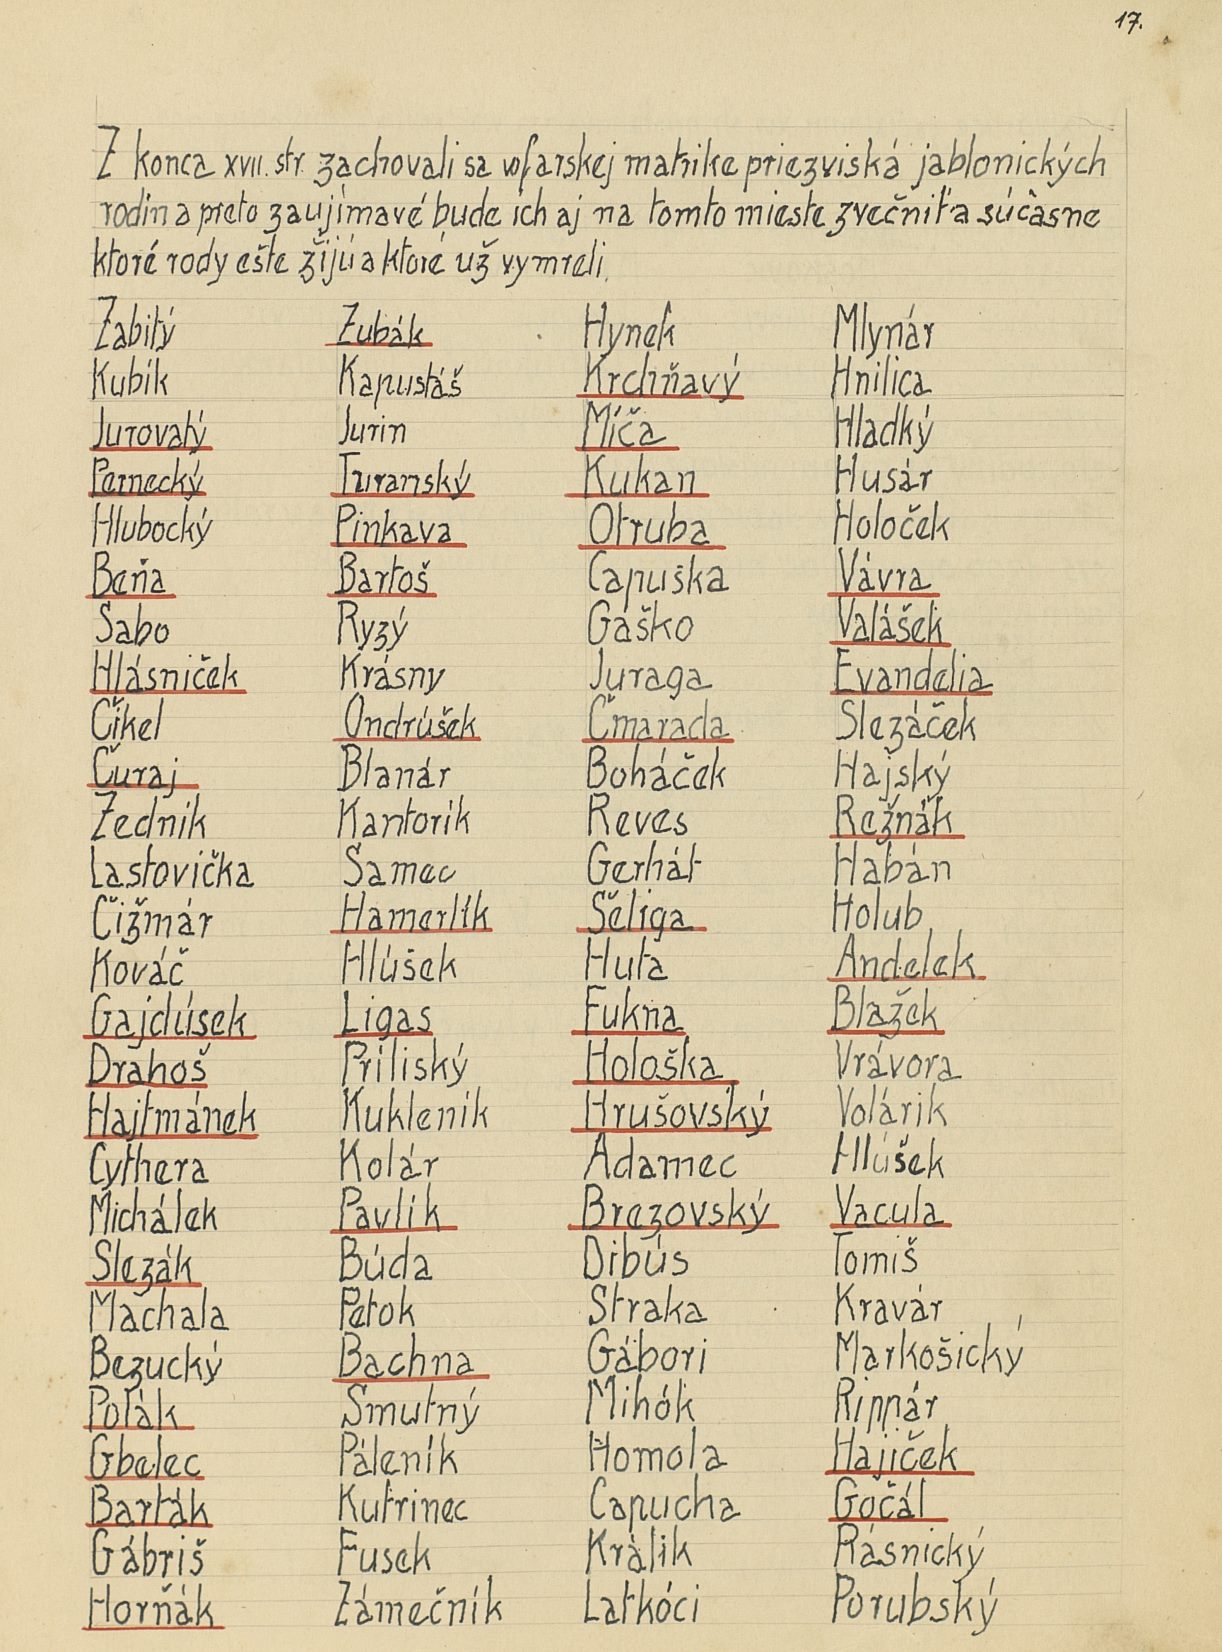 17.
Z konca XVII. str. zachovali sa vo farskej matrike priezviská jablonických
rodín a preto zaujímavé bude ich aj na tomto mieste zvečniť a súčasne
ktoré rody ešte žijú a ktoré už vymreli.
Zabitý Zubák Hynek Mlynár
Kubík Kapustáš Krchňavý Hnilica
Jurovatý Jurin Míča Hladký
Pernecký Turanský Kukan Husár
Hlubocký Pinkava Otruba Holoček
Beňa Bartoš Capuška Vávra
Sabo Ryzý Gaško Valášek
Hlásniček Krásny Juraga Evandelia
Čikel Ondrúšek Čmarada Slezáček
Čuraj Blanár Boháček Hajský
Zednik Kantorik Reves Režnák
Lastovička Samec Gerhát Habán
Čižmár Hamerlík Šeliga Holub
Kováč Hlúšek Huta Andelek
Gajdúsek Ligas Fukna Blažek
Drahoš Príliský Hološka Vrávora
Hajtmánek Kuklenik Hrušovský Volárik
Cythera Kolár Adamec Hlúšek
Michálek Pavlík Brezovský Vacula
Slezák Búda Dibús Tomiš
Machala Petok Straka Kravár
Bezucký Bachna Gábori Markošický
Polák Smutný Mihók Rippár
Gbelec Páleník Homola Hajiček
Barták Kutrinec Capucha Gočál
Gábriš Fusek Králik Rásnický
Horňák Zámečník Latkóci Porubský